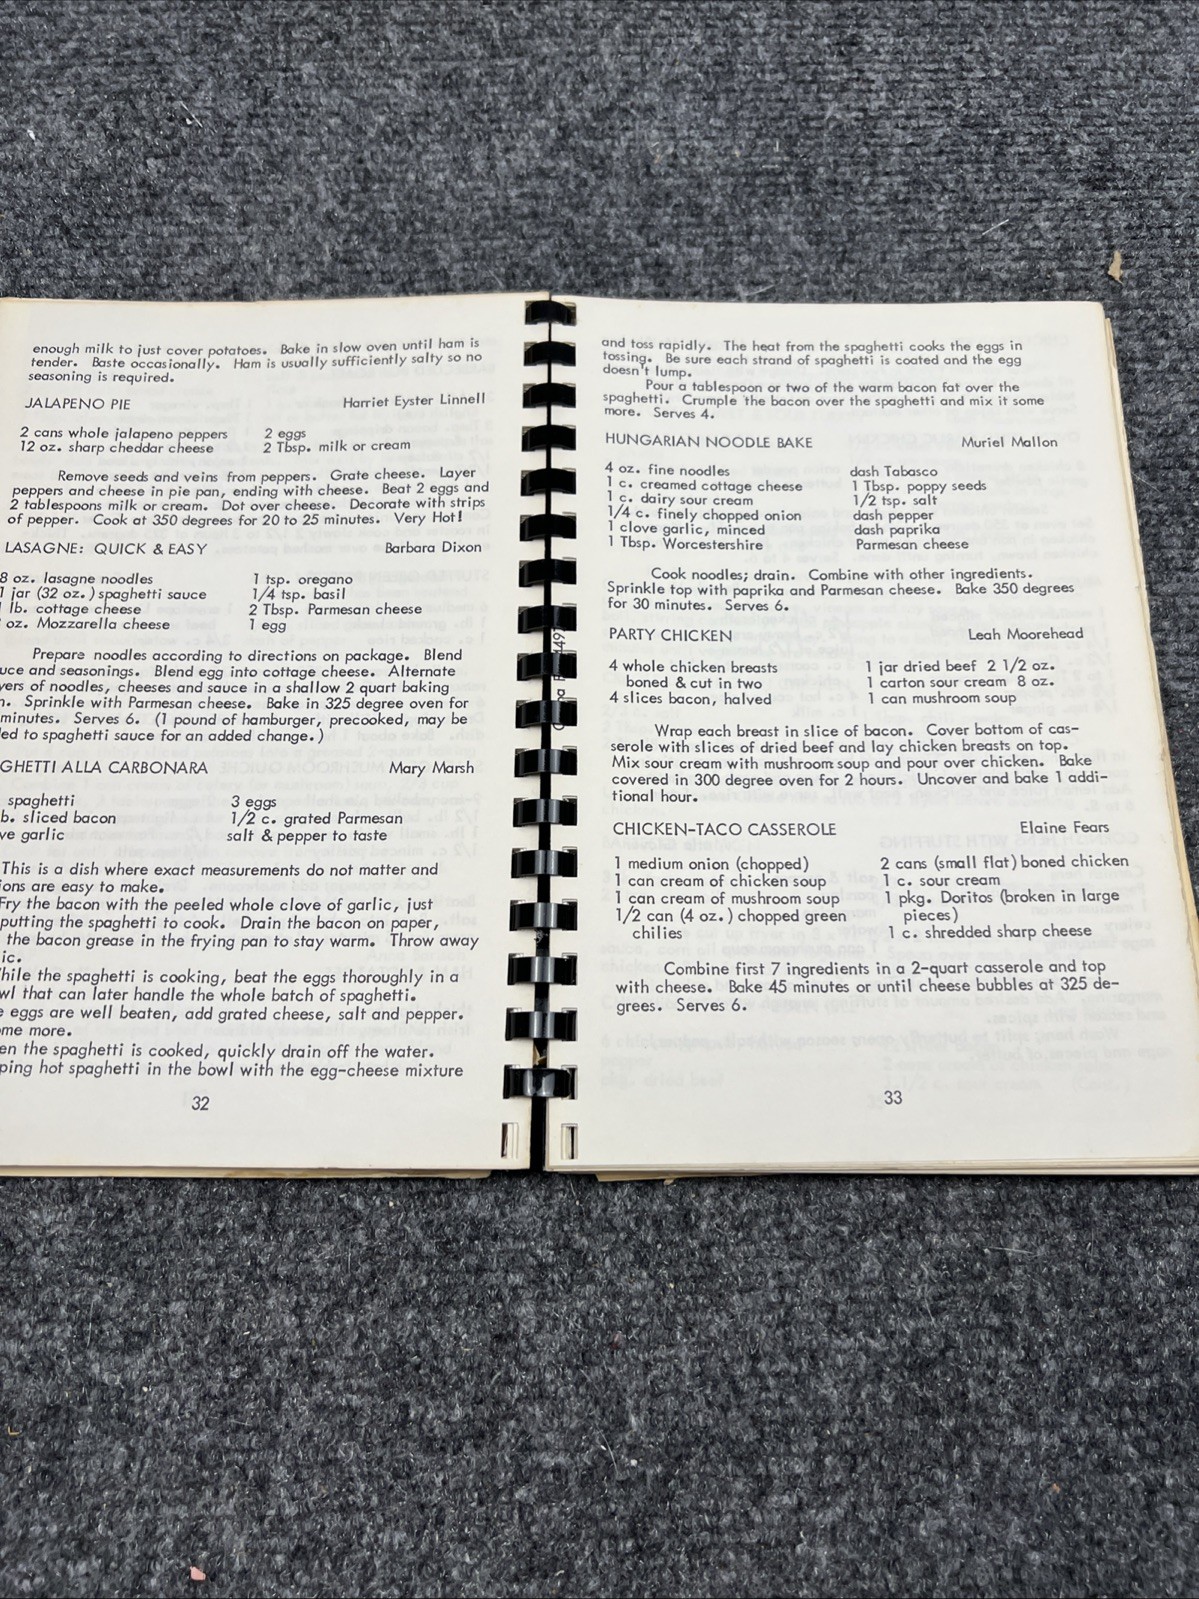 enough milk to just cover potatoes. Bake in slow oven until ham is
tender. Baste occasionally. Ham is usually sufficiently salty so no
seasoning is required.
JALAPENO PIE Harriet Eyster Linnell
2 cans whole jalapeno peppers 2 eggs
12 oz. sharp cheddar cheese 2 Tbsp. milk or cream
Remove seeds and veins from peppers. Grate cheese. Layer
peppers and cheese in pie pan, ending with cheese. Beat 2 eggs and
2 tablespoons milk or cream. Dot over cheese. Decorate with strips
of pepper. Cook at 350 degrees for 20 to 25 minutes. Very Hot!
LASAGNE: QUICK & EASY Barbara Dixon
8 oz. lasagne noodles 1 tsp. oregano
1 jar (32 oz.) spaghetti sauce 1/4 tsp. basil
lb. cottage cheese 2 Tbsp. Parmesan cheese
oz. Mozzarella cheese 1 egg
Prepare noodles according to directions on package. Blend
uce and seasonings. Blend egg into cottage cheese. Alternate
yers of noodles, cheeses and sauce in a shallow 2 quart baking
. Sprinkle with Parmesan cheese. Bake in 325 degree oven for
minutes. Serves 6. (1 pound of hamburger, precooked, may be
ed to spaghetti sauce for an added change.)
GHETTI ALLA CARBONARA Mary Marsh
spaghetti 3 eggs
b. sliced bacon 1/2 c. grated Parmesan
ve garlic salt & pepper to taste
This is a dish where exact measurements do not matter and
ions are easy to make.
Fry the bacon with the peeled whole clove of garlic, just
putting the spaghetti to cook. Drain the bacon on paper,
the bacon grease in the frying pan to stay warm. Throw away
ic.
hile the spaghetti is cooking, beat the eggs thoroughly in a
wl that can later handle the whole batch of spaghetti.
e eggs are well beaten, add grated cheese, salt and pepper.
ome more.
en the spaghetti is cooked, quickly drain off the water.
ping hot spaghetti in the bowl with the egg-cheese mixture
32
and toss rapidly. The heat from the spaghetti cooks the eggs in
tossing. Be sure each strand of spaghetti is coated and the egg
doesn't lump.
Pour a tablespoon or two of the warm bacon fat over the
spaghetti. Crumple the bacon over the spaghetti and mix it some
more. Serves 4.
HUNGARIAN NOODLE BAKE Muriel Mallon
4 oz. fine noodles dash Tabasco
1 c. creamed cottage cheese 1 Tbsp. poppy seeds
1 c. dairy sour cream 1/2 tsp. salt
1/4 c. finely chopped onion dash pepper
1 clove garlic, minced dash paprika
1 Tbsp. Worcestershire Parmesan cheese
Cook noodles; drain. Combine with other ingredients.
Sprinkle top with paprika and Parmesan cheese. Bake 350 degrees
for 30 minutes. Serves 6.
PARTY CHICKEN Leah Moorehead
4 whole chicken breasts 1 jar dried beef 2 1/2 oz.
boned & cut in two 1 carton sour cream 8 oz.
4 slices bacon, halved 1 can mushroom soup
Wrap each breast in slice of bacon. Cover bottom of cas-
serole with slices of dried beef and lay chicken breasts on top.
Mix sour cream with mushroom soup and pour over chicken. Bake
covered in 300 degree oven for 2 hours. Uncover and bake 1 addi-
tional hour.
CHICKEN-TACO CASSEROLE Elaine Fears
1 medium onion (chopped) 2 cans (small flat) boned chicken
1 can cream of chicken soup 1 c. sour cream
1 can cream of mushroom soup 1 pkg. Doritos (broken in large
1/2 can (4 oz.) chopped green pieces)
chilies 1 c. shredded sharp cheese
Combine first 7 ingredients in a 2-quart casserole and top
with cheese. Bake 45 minutes or until cheese bubbles at 325 de-
grees. Serves 6.
33